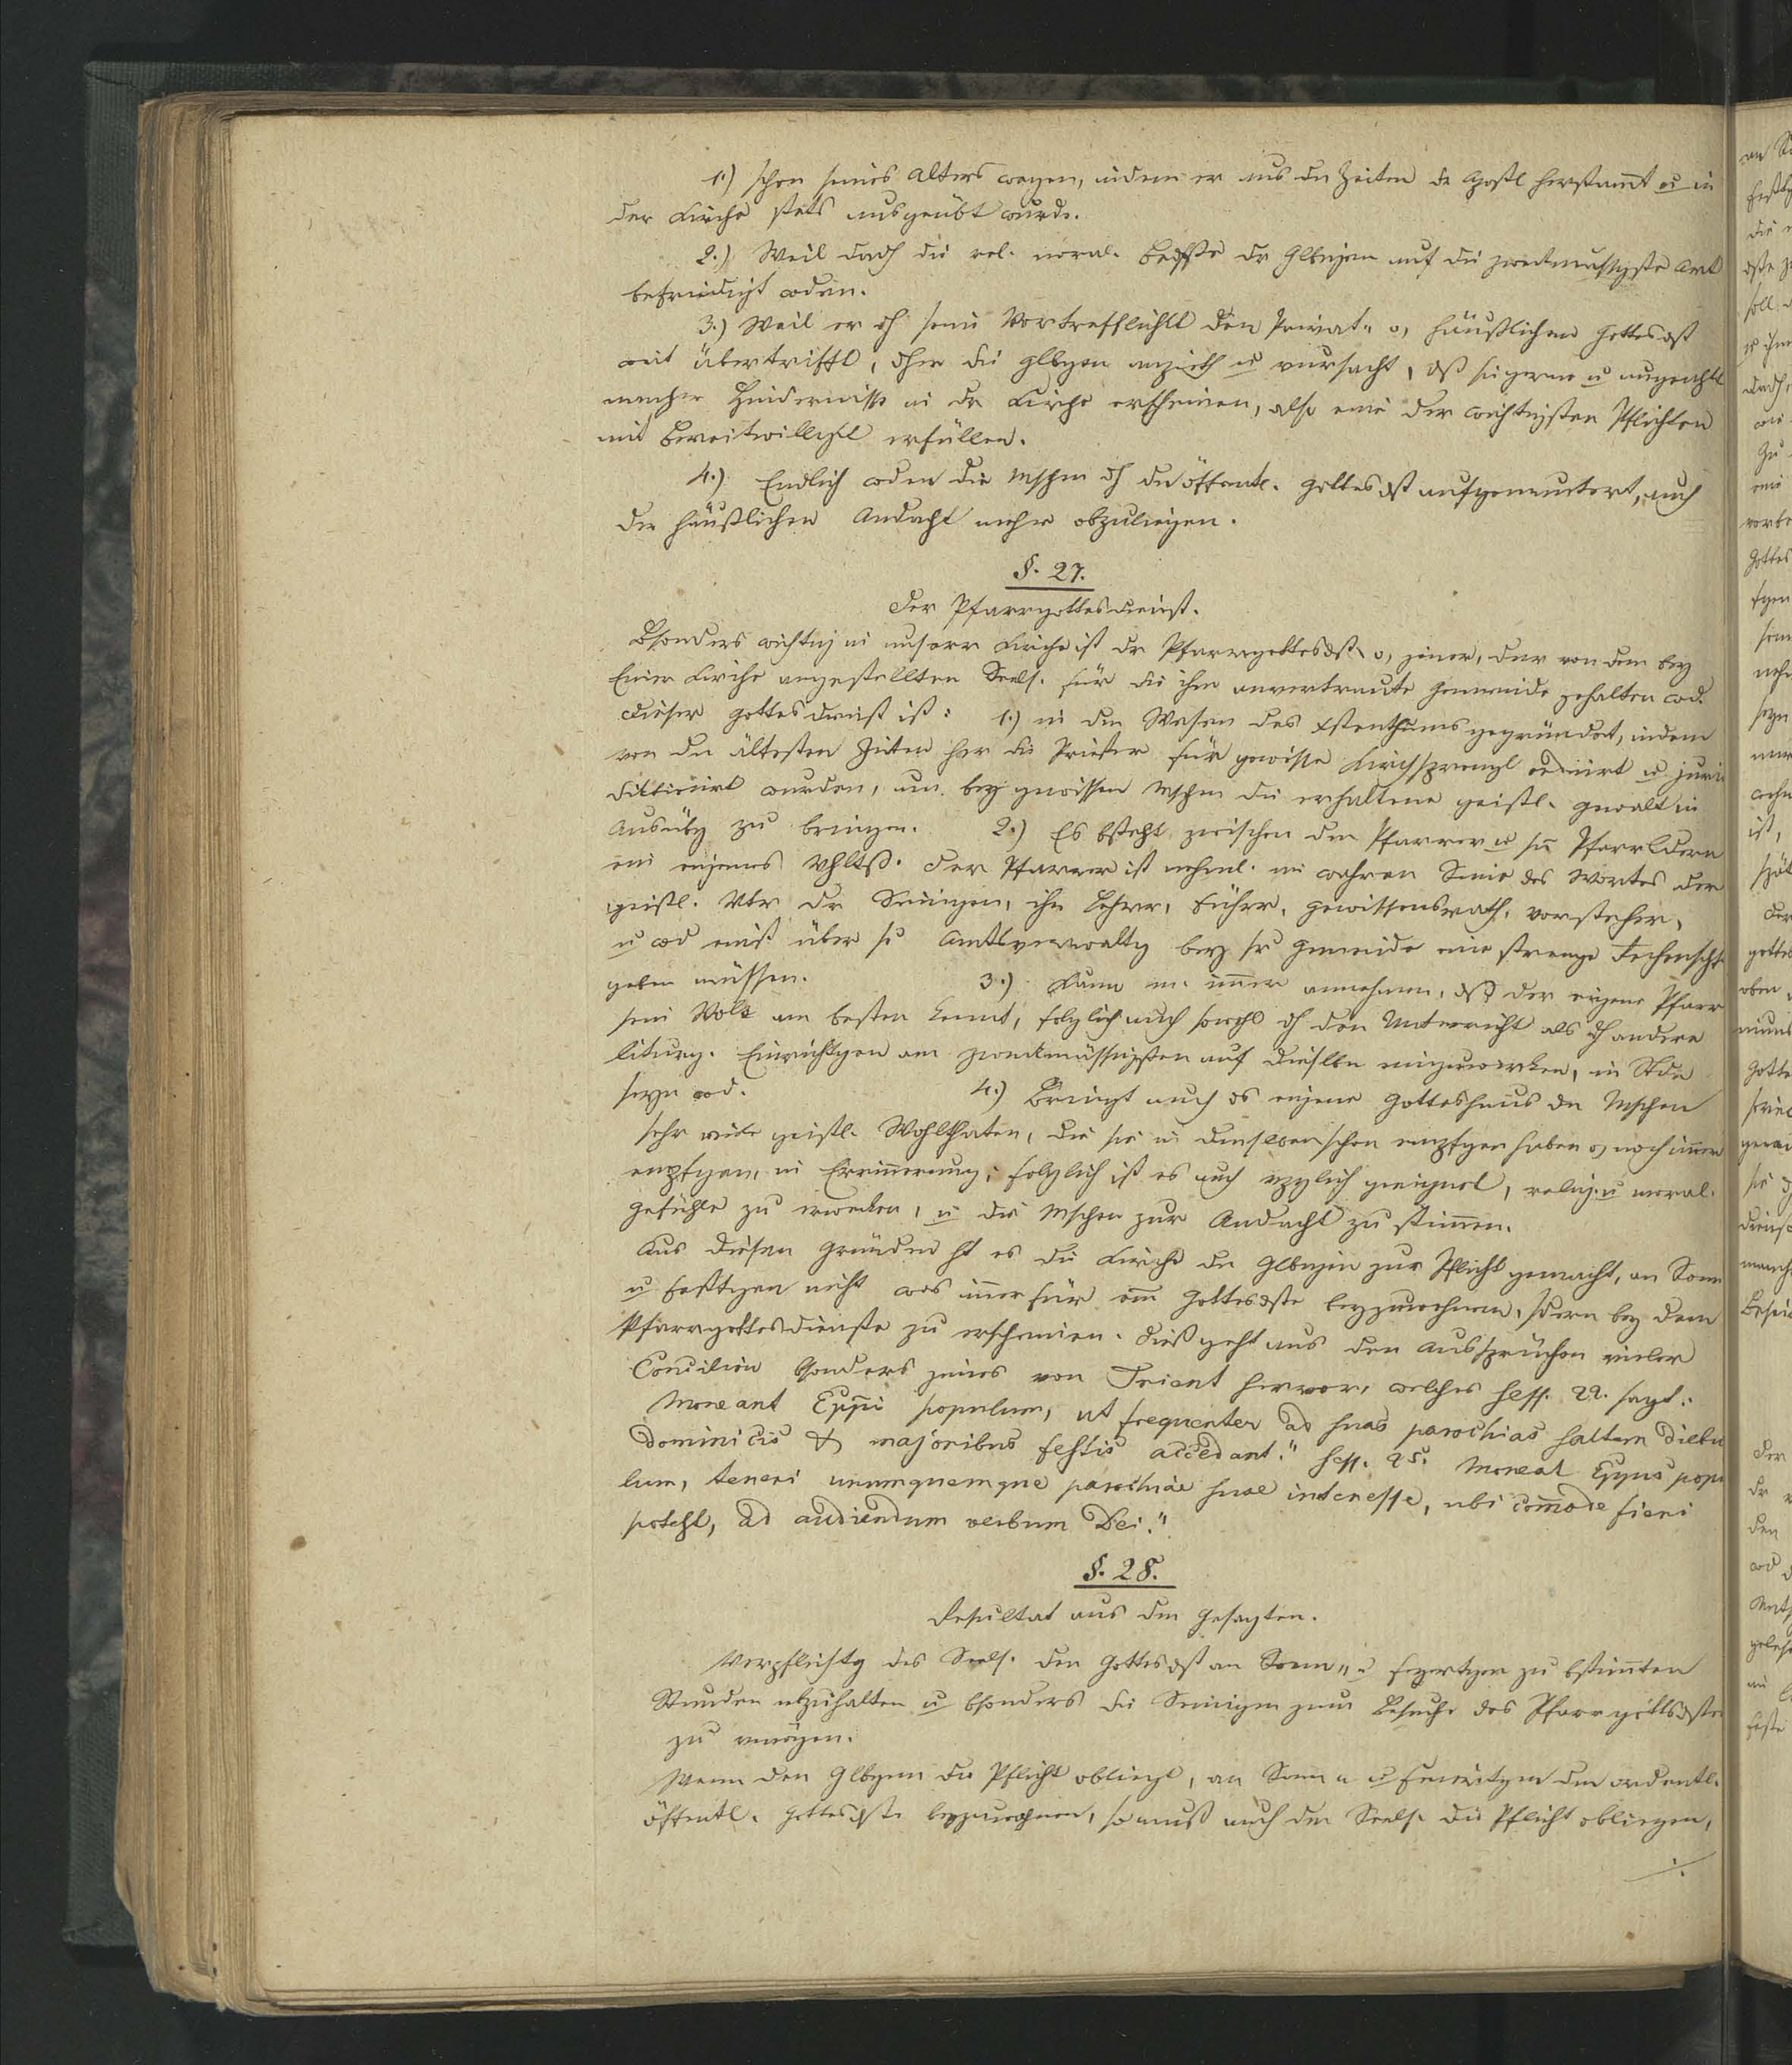 1.) schon seines Alters wegen, indem er aus dn Zeiten de Apostl herstam̄t u in
der Kirche stets ausgeübt wurde.
2.) Weil dadh die rel. moral. Bedfße dr Glbigen auf die zweckmässigste Art
befriedigt wden.
3.) Weil er dh seine Vortrefflichkt den Privat- o, häußlichen Gottesdst
weit übertrifft, dher die Glbgen anzieht u vursacht, dß sie gerne u ungeachtt
mancher Hindernisse in dr Kirche erscheinen, also eine der wichtigsten Pflichten
mit Bereitwilligkt erfüllen.
4.) Endlich wden die Mschen dh dn öffentl. Gottesdst aufgemuntert, auch
der häußlichen Andacht mehr obzuliegen.
§. 27.
Der Pfarrgottesdienst.
Bsonders wichtig in unserer Kirche ist dr Pfarrgottesdst, o, jener, der von dem bey
Einer Kirche angestellten Seels. für die ihm anvertraute Gemeinde gehalten wd.
Dieser Gottesdienst ist: 1.) in dem Wesen des Xstenthums gegründet, indem
von dn ältesten Zeiten her die Priester für gewisse Kirchsprengl ordinirt u juris
dictionirt wurden, um bey gewissen Mschen die erhaltene geistl. Gewalt in
Ausübg zu bringen. 2.) Es bsteht zwischen dem Pfarrer u sn Pfarrkdern
ein eigenes Vhltß. Der Pfarrer ist nehml. im wahren Sinne des Wortes der
geistl. Vtr dr Seinigen, ihr Lehrer, Führer, Gewissensrath, Vorsteher,
u wd einst über se Amtsverwaltg bey sr Gemeinde eine strenge Rechenschft
geben müssen. 3.) Kann m. im̄er annehmen, dß der eigene Pfarr
sein Volk am besten kennt, folglich auch sowohl dh den Unterricht als dh andere
liturg. Einrichtgen am zweckmässigsten auf dieslbe einzuwirken, im Stde
seyn wd. 4.) Bringt auch ds eigene Gotteshaus dn Mschen
sehr viele geistl. Wohlthaten, die sie in demselben schon empfgen haben o, noch im̄er
empfgen, in Errinnerung; folglich ist es auch vzglich geeignet, relig. u moral.
Gefühle zu erwecken, u die Mschen zur Andacht zu stim̄en.
Aus diesen Gründen ht es die Kirche dn Glbigen zur Pflicht gemacht, an Sonn
u Festtgen nicht was im̄er für em̄ Gottesdste beyzuwohnen, sdern bey dem
Pfarrgottesdienste zu erscheinen. Dieß geht aus den Aussprüchen vieler
Concilien bsonders jenes von Trient hervor, welches Sess. 22. sagt:
Moneant Eppi populum, ut frequenter ad suas parochias saltem diebu
dominicis & majoribus festis accedant." Sess. 25. Moneat Eppus popu
lum, teneri unumquemque parochiae suae interesse, ubi com̄ode fieri
potest, ad audiendum verbum Dei."
§. 28.
Resultat aus dem Gesagten.
Verpflichtg des Seels. den Gottesdst an Sonn- u Feyertgen zu bstim̄ten
Stunden abzuhalten u bsonders die Seinigen zum Besuche des Pfarrgottsdstes
zu vmögen.
Wenn den Glbgen die Pflicht obliegt, an Sonn- u Feiertgen dem ordentl.
öffentl. Gottesdste beyzuwohnen, so muß auch dem Seels. die Pflicht obliegen,